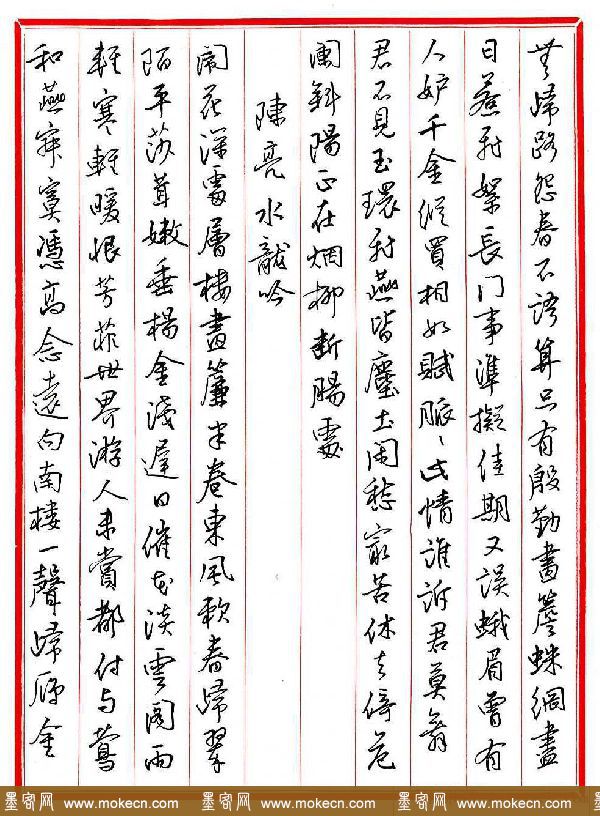 無歸路怨春不語算只有殷勤畫簷蛛網盡
日惹飛絮長門事準擬佳期又誤蛾眉曾有
人妒千金縱買相如賦脈〻此情誰訴君莫舞
君不見玉環飛燕皆塵土閑愁最苦休去倚危
闌斜陽正在烟柳斷腸處
陳亮水龍吟
鬧花深處層樓畫簾半卷東風軟春歸翠
陌平莎茸嫩垂楊金淺遲日催花淡雲閣雨
輕寒輕暖恨芳菲世界游人未賞都付与鶯
和燕寂寞憑高念遠向南樓一聲歸雁金
墨客网 www.mokecn.com 墨客网 www.mokecn.com 墨客网 www.mokecn.com